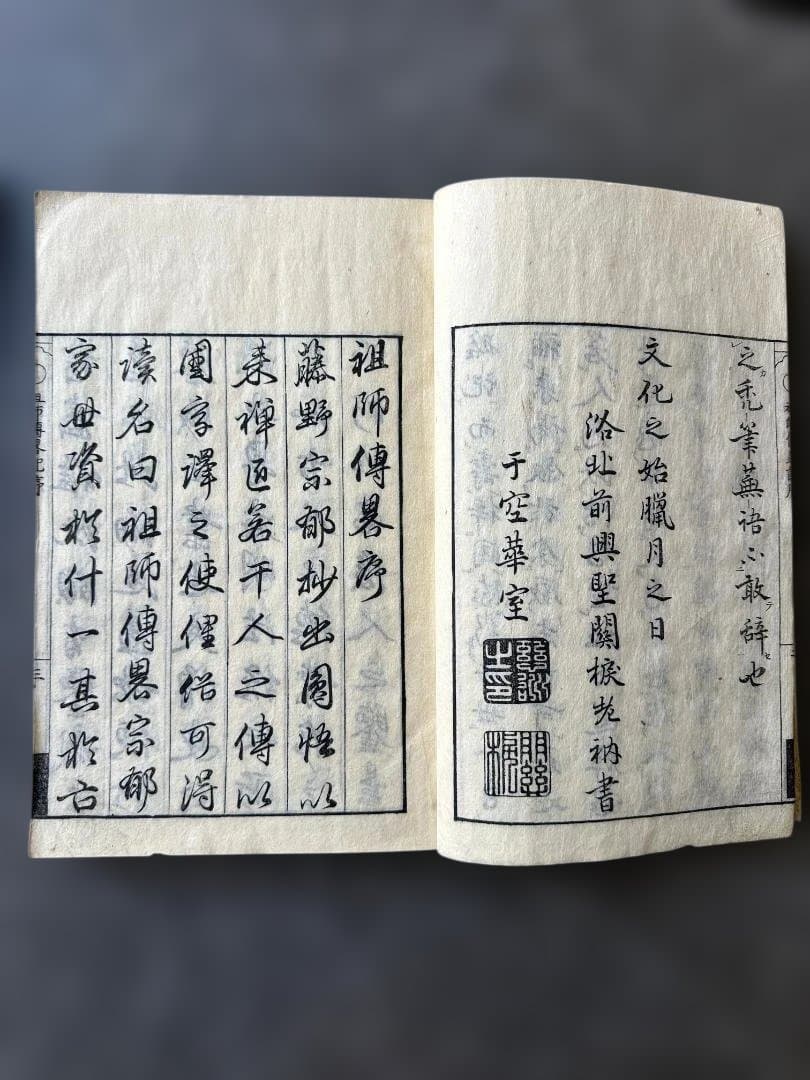 之禿筆蕪語不敢辞也
文化之始臘月之日
洛北前興聖關棙老衲書
于空華室
祖師傳畧序
藤野宗郁抄出圓悟以
来禅匠若干人之傳以
國字譯之使俚俗可得
读名曰祖師傳畧宗郁
家毋資於什一其於古
祖師傳畧記序
三